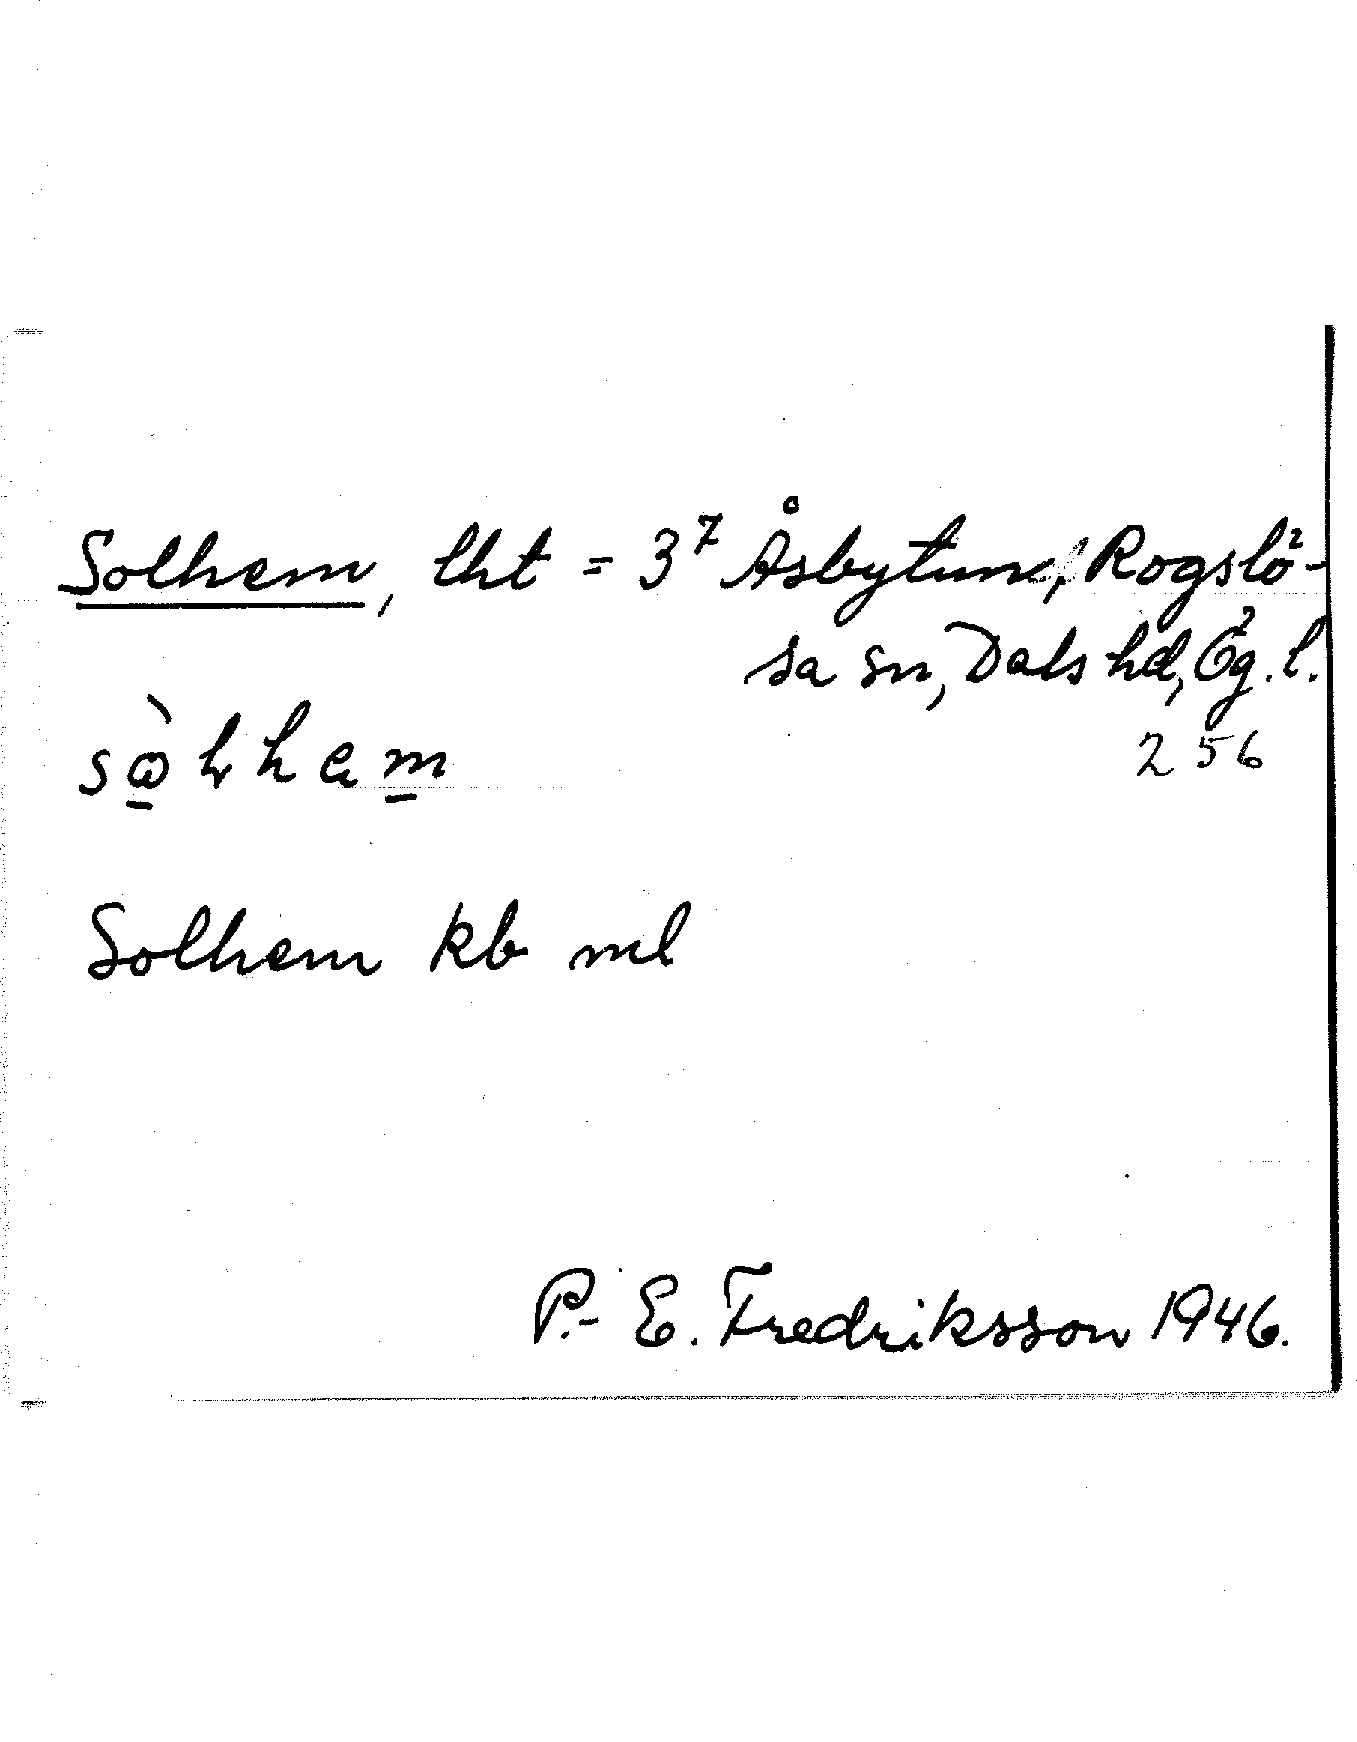 Solhem, lht = 3⁷ Åsbytun, Rogslö-
sa sn, Dals hd, Ög. l.
256
Solhem kb ml
P.-E. Fredriksson 1946.